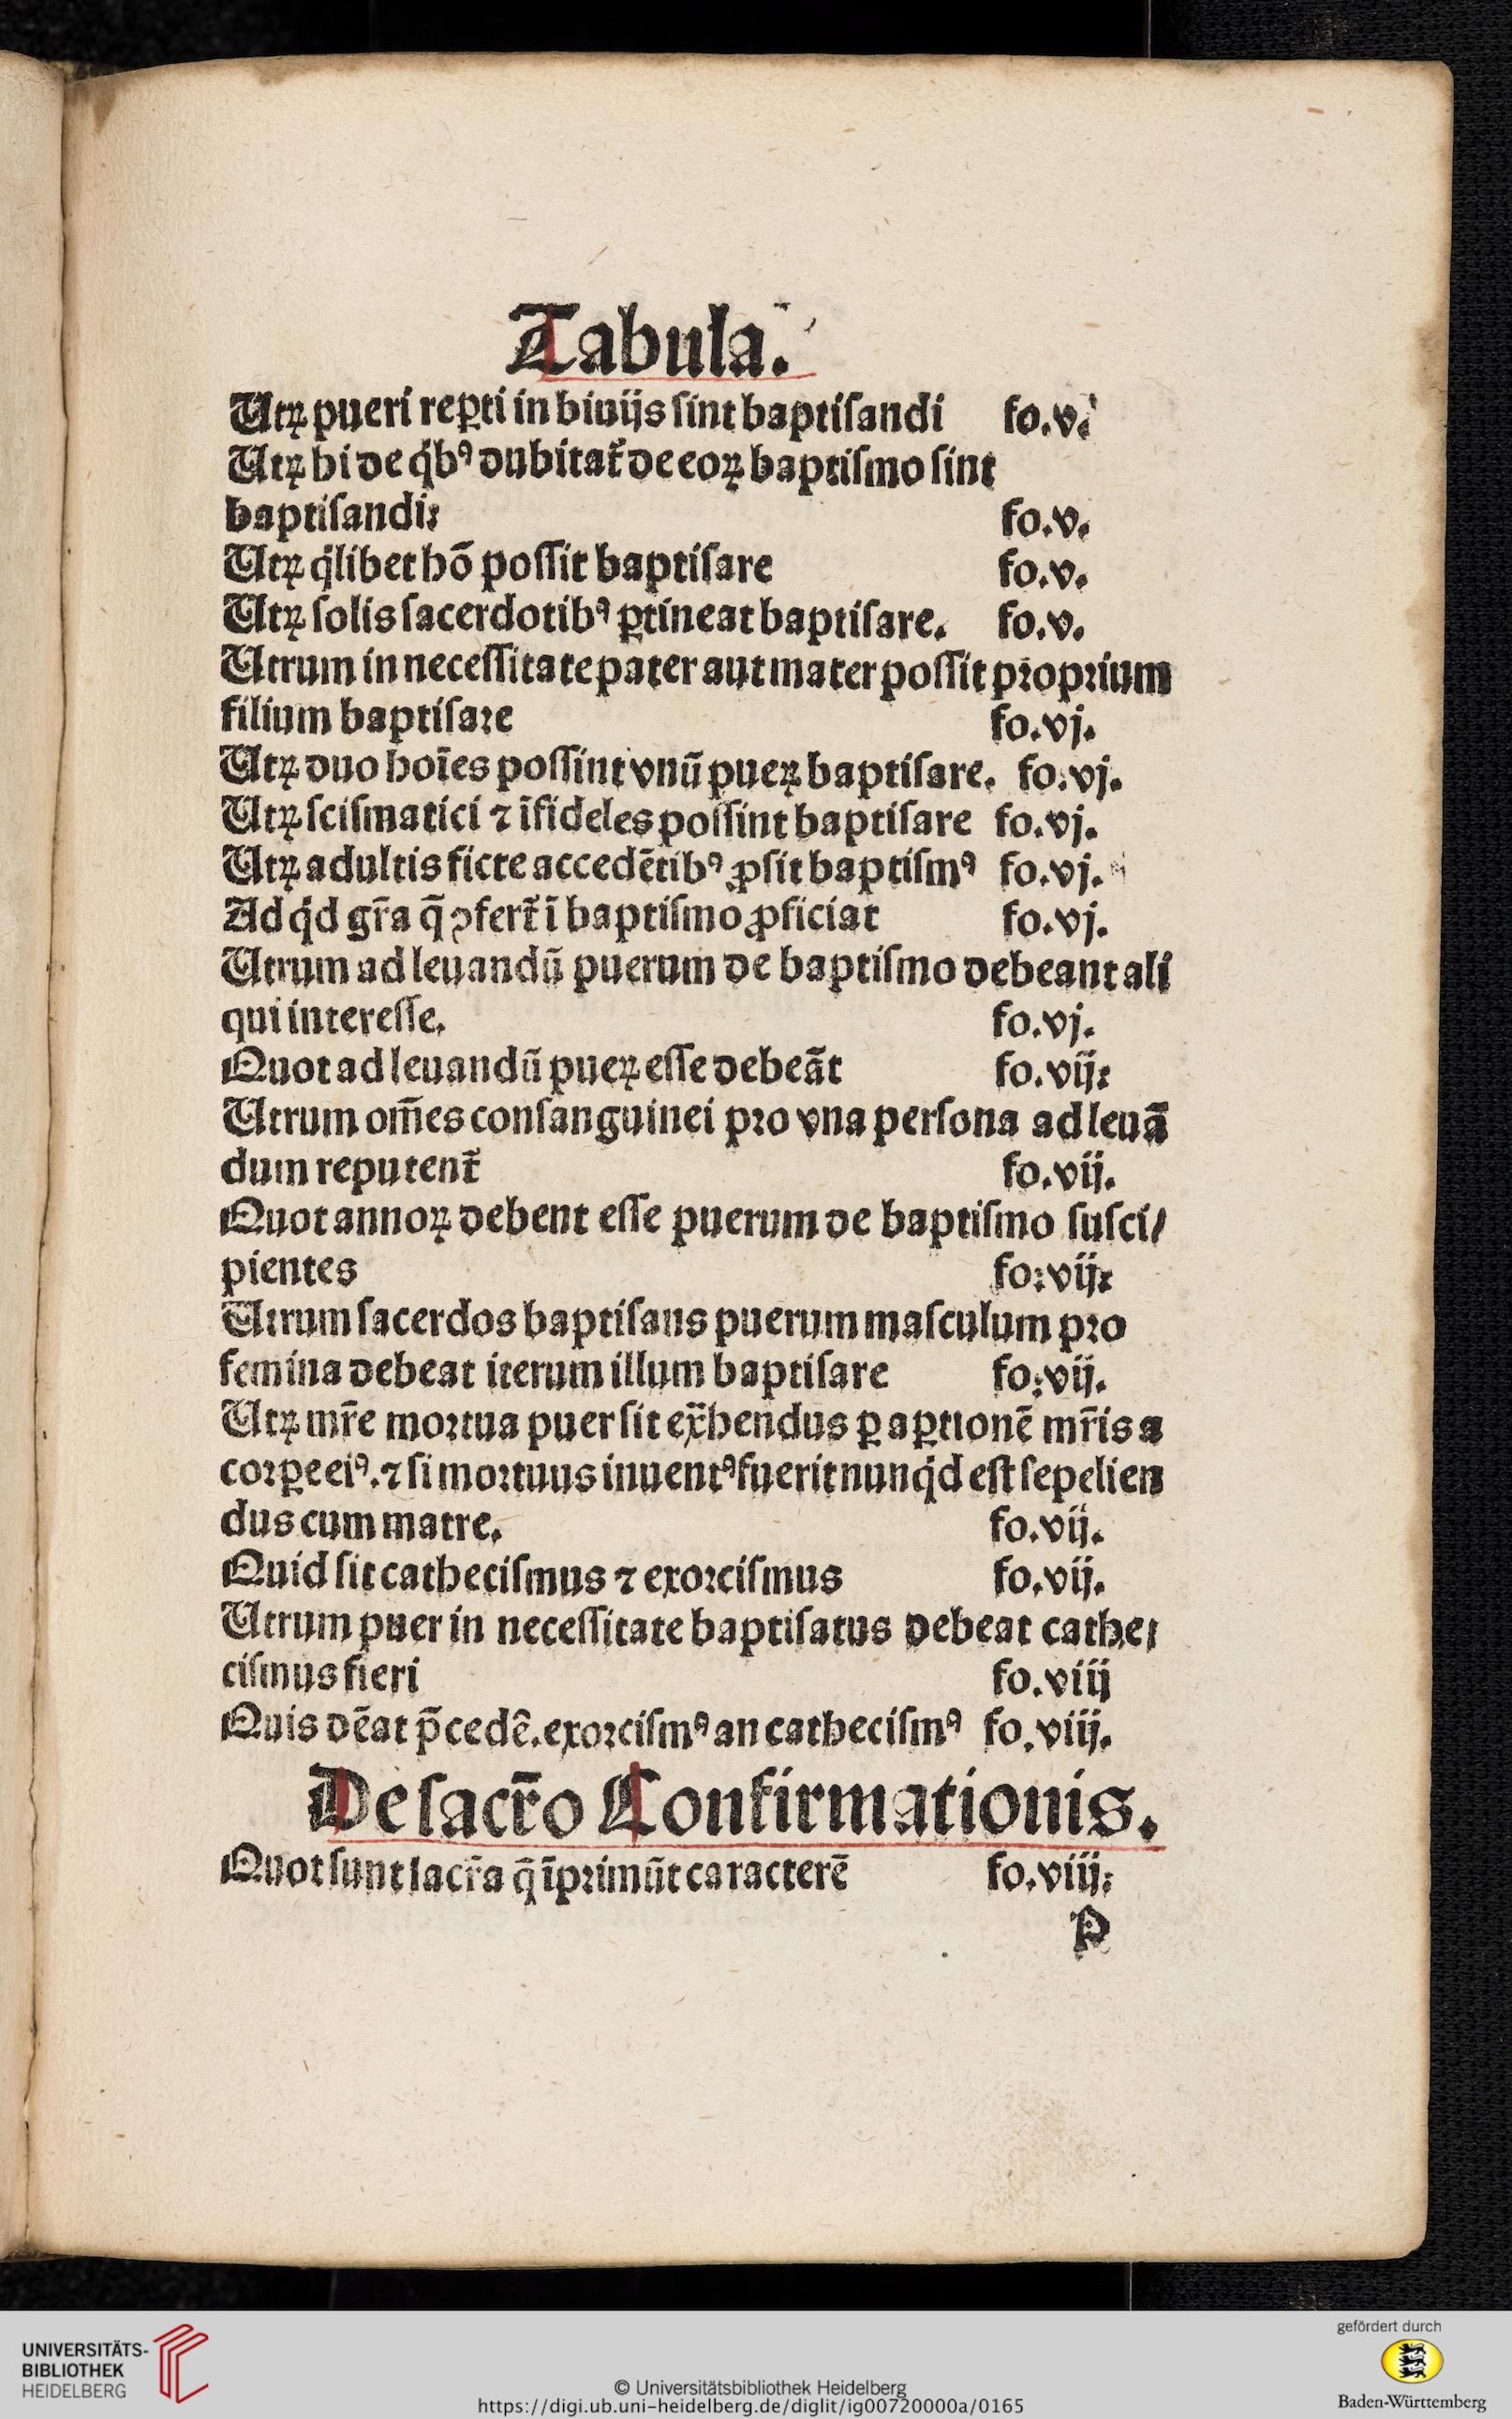 Tabula.
Utꝝ pueri reꝑti in biuijs ſint baptiſandi fo.v.
Utꝝ hi de q̇bꝰ dubitat᷑ de eoꝝ baptiſmo ſint
baptiſandi: fo.v.
Utꝝ q̇libet hō poſſit baptiſare fo.v.
Utꝝ ſolis ſacerdotibꝰ ꝑtineat baptiſare. fo.v.
Utrum in neceſſitate pater aut mater poſſit pꝛopꝛium
filium baptiſaꝛe fo.vj.
Utꝝ duo hoīes poſſint vnū pueꝝ baptiſare. fo.vj.
Utꝝ ſciſmatici ⁊ īfideles poſſint baptiſare fo.vj.
Utꝝ adultis ficte accedētibꝰ ꝓſit baptiſmꝰ fo.vj.
Ad q̇d gr̄a q̄ ꝯfert᷑ ī baptiſmo ꝓficiat fo.vj.
Utrum ad leuandū puerum de baptiſmo debeant ali
qui intereſſe. fo.vj.
Quot ad leuandū pueꝝ eſſe debeāt fo.vij:
Utrum om̄es conſanguinei pꝛo vna perſona ad leuā
dum reputent᷑ fo.vij.
Quot annoꝝ debent eſſe puerum de baptiſmo ſuſci/
pientes fo:vij:
Utrum ſacerdos baptiſans puerum maſculum pꝛo
femina debeat iterum illum baptiſare fo:vij.
Utꝝ mr̄e moꝛtua puer ſit ex̄hendus ꝑ aꝑtionē mr̄is a
coꝛꝑe eiꝰ.⁊ ſi moꝛtuus inuentꝰ fuerit nunq̇d eſt ſepelien
dus cum matre. fo.vij.
Quid ſit catheciſmus ⁊ exoꝛciſmus fo.vij.
Utrum puer in neceſſitate baptiſatus debeat cathe/
ciſmus fieri fo.viij
Quis dēat p̄cedē.exoꝛciſmꝰ an catheciſmꝰ fo.viij.
De ſacr̄o Confirmationis.
Quot ſunt ſacr̄a q̄ īpꝛimūt caracterē fo.viij:
P
UNIVERSITÄTS-
BIBLIOTHEK
HEIDELBERG
© Universitätsbibliothek Heidelberg
https://digi.ub.uni-heidelberg.de/diglit/ig00720000a/0165
gefördert durch
Baden-Württemberg